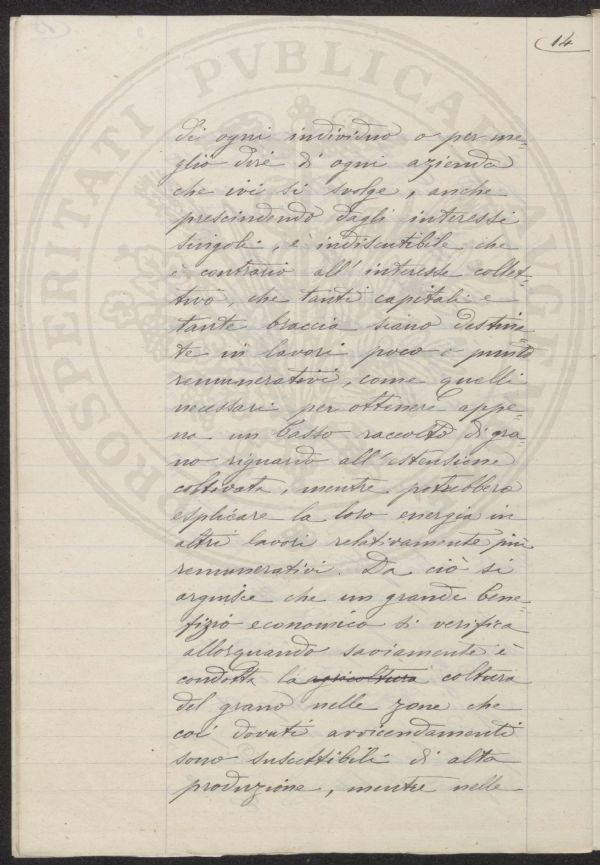 14
di ogni individuo o per me-
glio dire di ogni azienda
che ivi si svolge, anche
prescindendo dagli interessi
singoli, è indiscutibile che
è contrario all'interesse collet-
tivo, che tanti capitali e
tante braccia siano destina-
te in lavori poco o punto
remunerativi, come quelli
necessari per ottenere appe-
na un basso raccolto di gra-
no riguardo all'estensione
coltivata, mentre potrebbero
esplicare la loro energia in
altri lavori relativamente più
remunerativi. Da ciò si
arguisce che un grande bene-
fizio economico si verifica
allorquando saviamente è
condotta la agricoltura coltura
del grano nelle zone che
coi dovuti avvicendamenti
sono suscettibili di alta
produzione, mentre nelle
PROSPERITATI PVBLICAE AVGENDAE